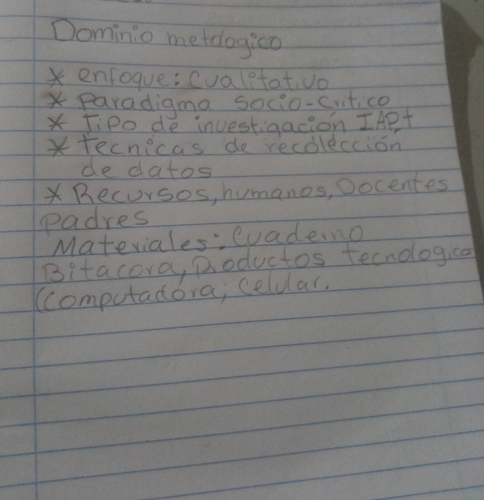 Dominio metologico
* enfoque: cualitativo
* Paradigma socio-critico
* Tipo de investigación IAPt
* tecnicas de recolección
de datos
* Recursos, humanos, Docentes
padres
Materiales: Cuaderno
Bitacora, Productos tecnologico
(computadora, celular.